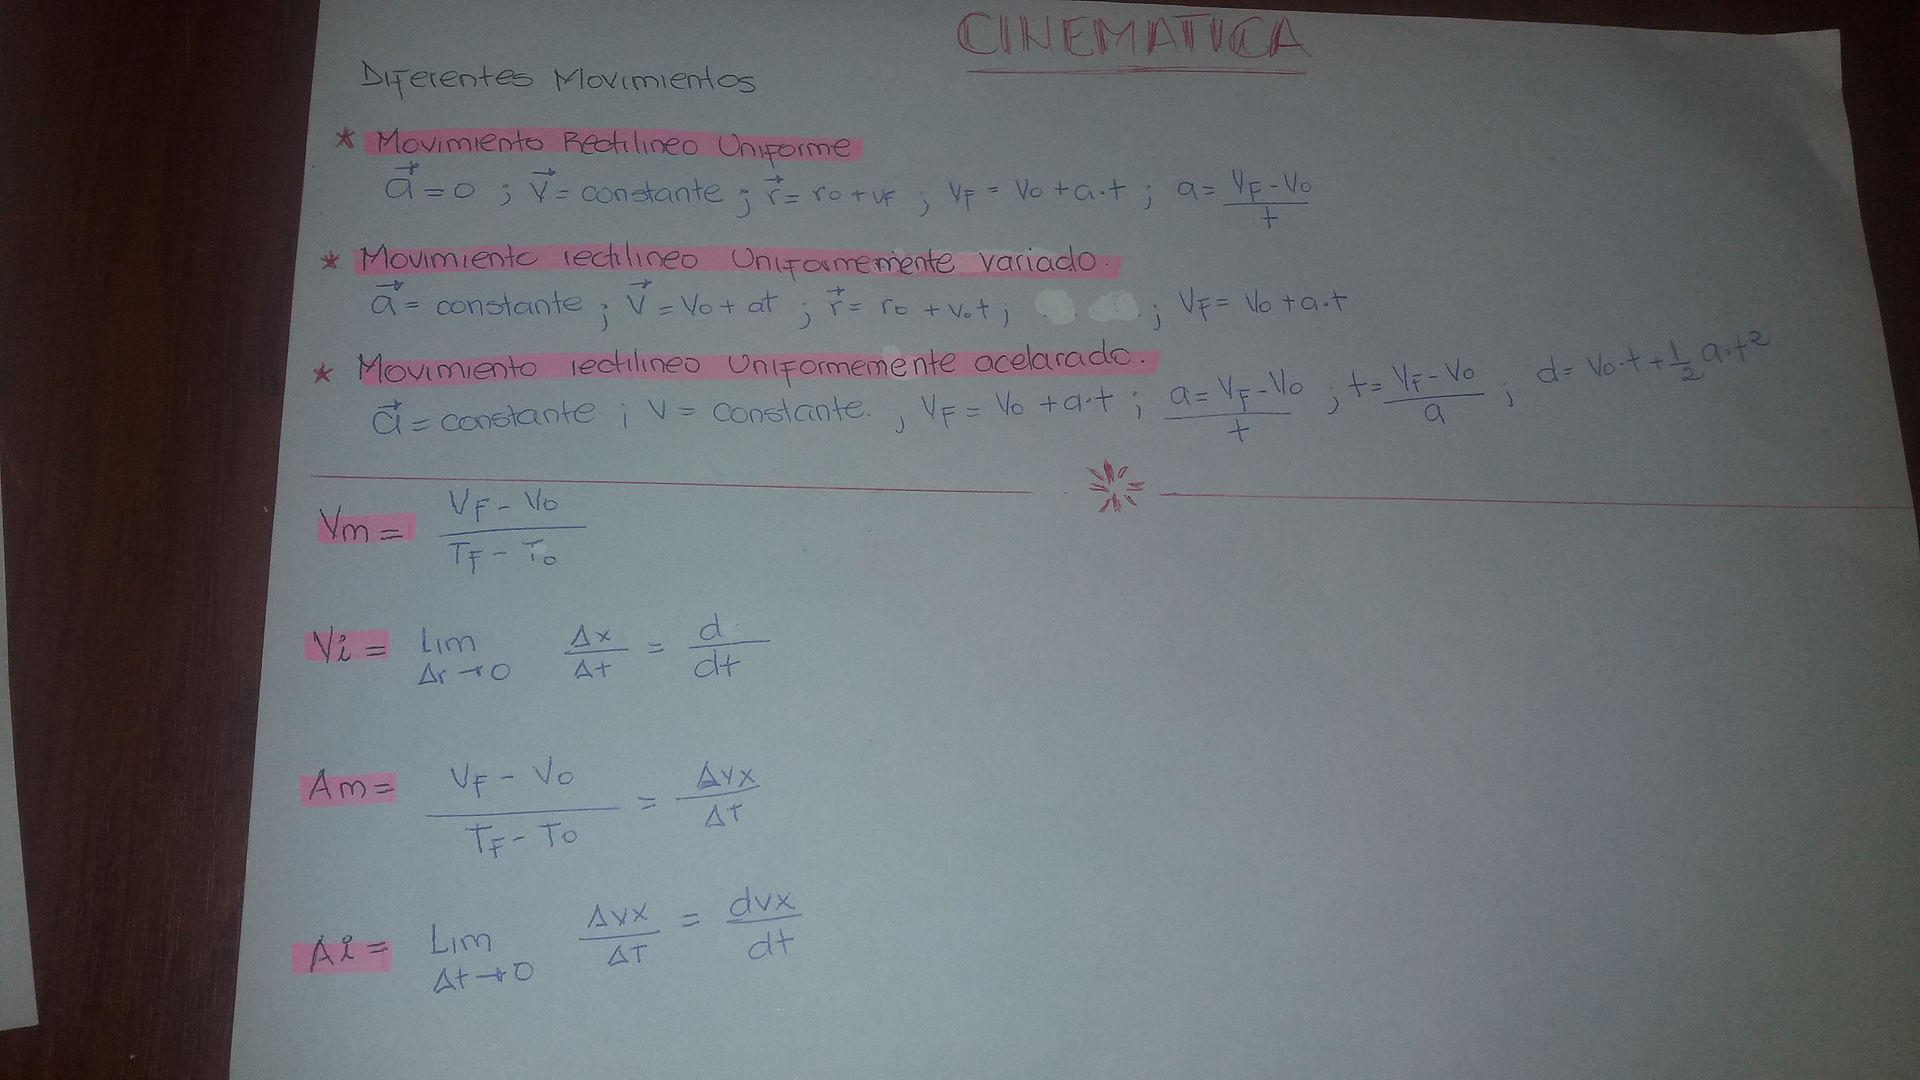 CINEMATICA
Diferentes Movimientos
* Movimiento Rectilineo Uniforme
a⃗ = 0 ; v⃗ = constante ; r⃗ = ro + vF ; VF = Vo + a.t ; a = VF - Vo / t
* Movimiento rectilineo Uniformemente variado.
a⃗ = constante ; V⃗ = Vo + at ; r⃗ = ro + Vo t ; ; VF = Vo + a.t
* Movimiento rectilineo Uniformemente acelarado.
a⃗ = constante ; V = constante. , VF = Vo + a.t ; a = VF - Vo / t ; t = VF - Vo / a ; d = Vo.t + 1/2 a.t²
Vm = VF - Vo / TF - To
Vi = Lim Δr→0 Δx / Δt = d / dt
Am = VF - Vo / TF - To = Δvx / ΔT
Ai = Lim Δt→0 Δvx / ΔT = dvx / dt